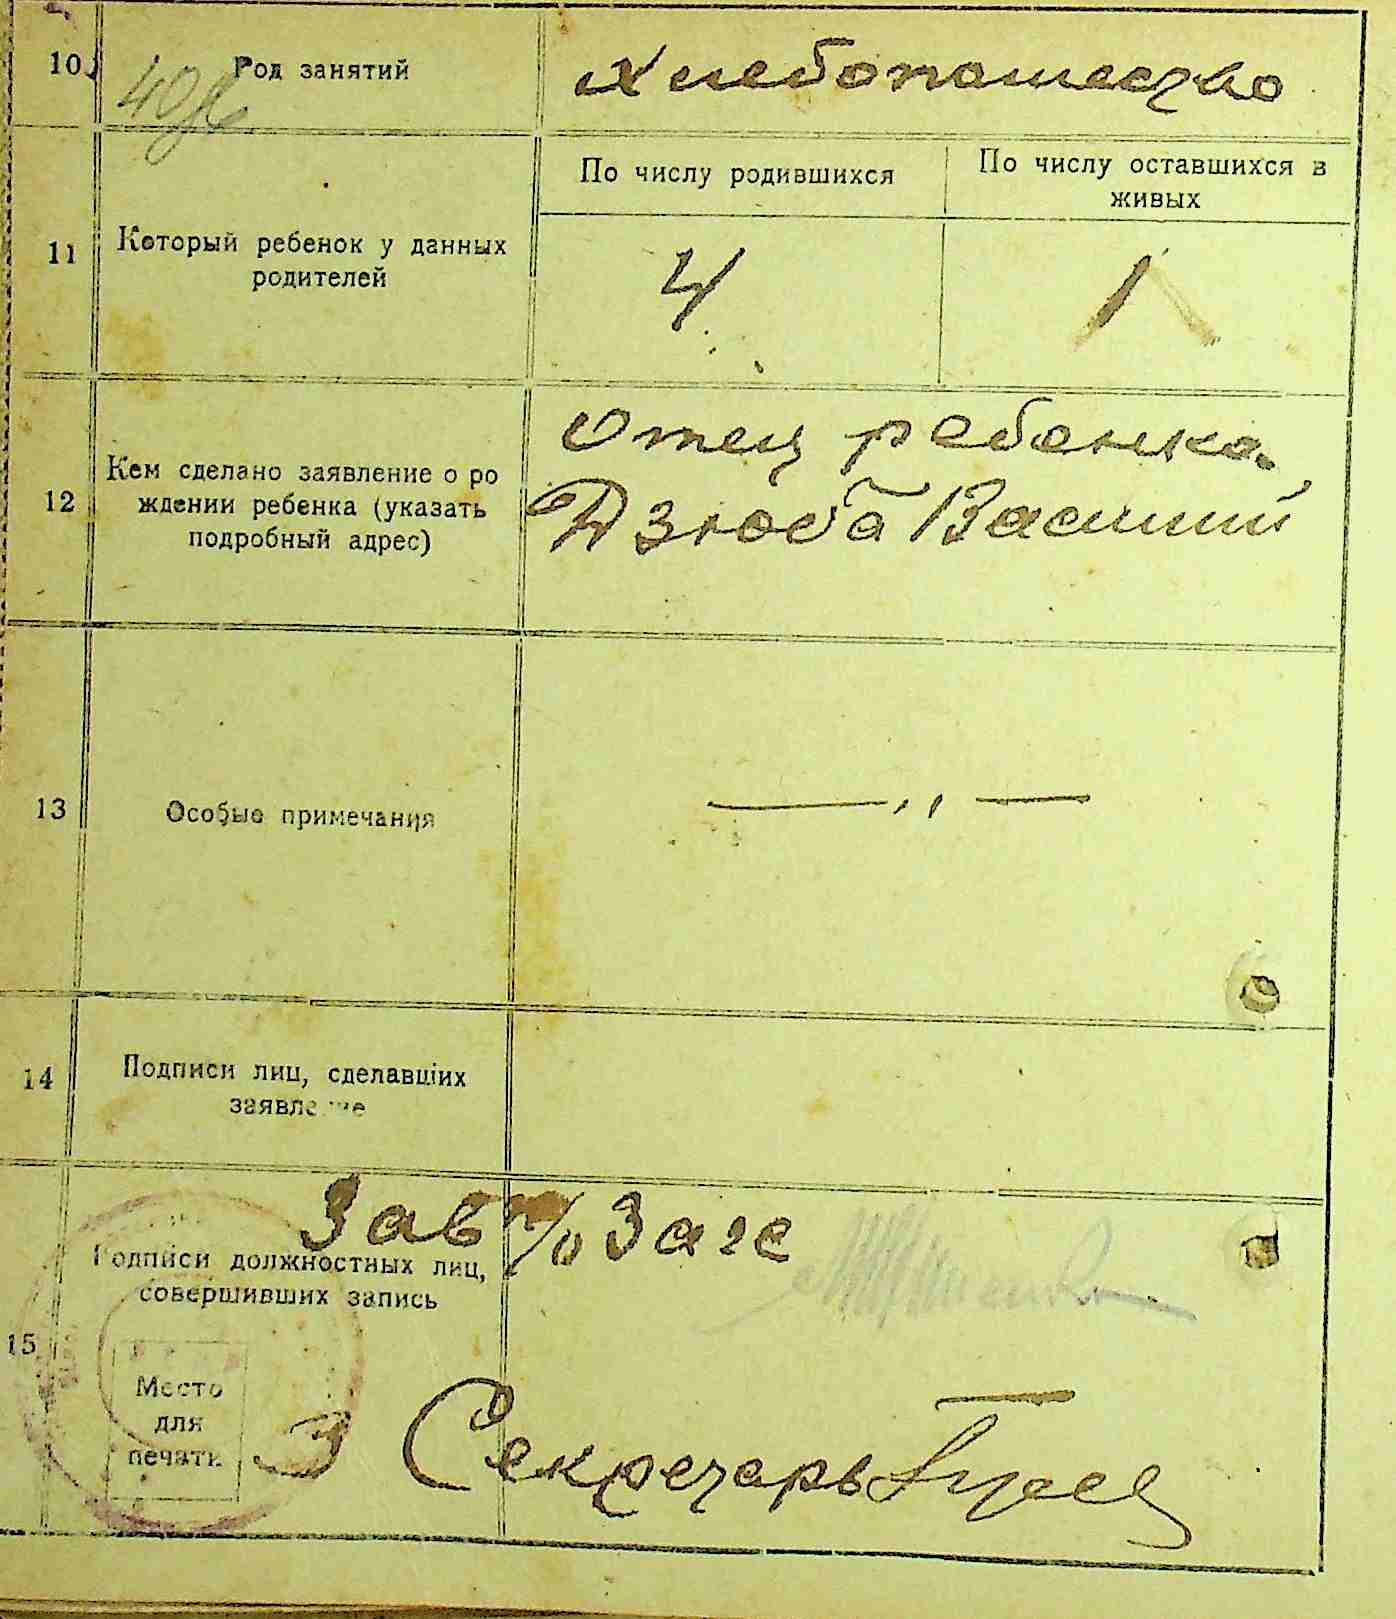 10
Род занятий
Хлебопашество
11
Который ребенок у данных
родителей
По числу родившихся
По числу оставшихся в
живых
4
1
12
Кем сделано заявление о ро
ждении ребенка (указать
подробный адрес)
Отец ребенка.
Дзюба Василий
13
Особые примечания
— „ —
14
Подписи лиц, сделавших
заявление
15
Подписи должностных лиц,
совершивших запись
Зав п/о Загс
Место
для
печати
З Секретарь